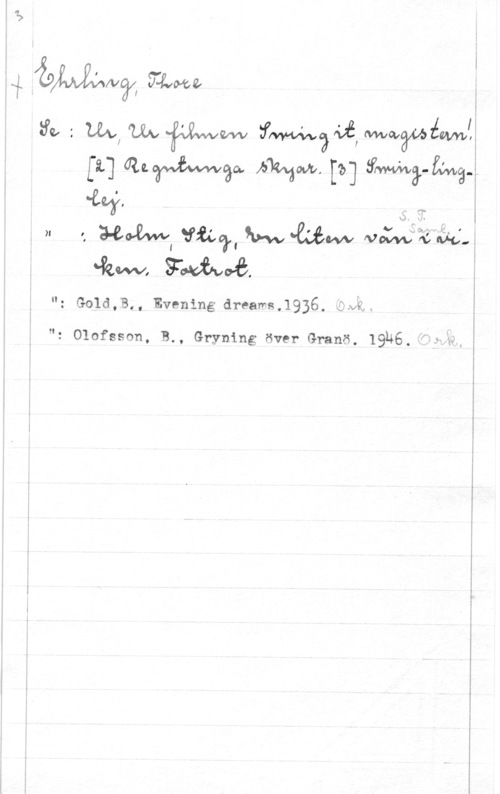 3
+ Ehrling, Thore
Se : Ur, Ur filmen Swing it, magistern!
[2] Regntunga skyar. [3] Swing-ling-
lej.
S. T.
Saml.
" : Holm, Stig, En liten vån i vi-
ken. Foxtrot.
": Gold,B., Evening dreams.1936. Ork.
": Olofsson, B., Gryning över Granö. 1946. Ork.